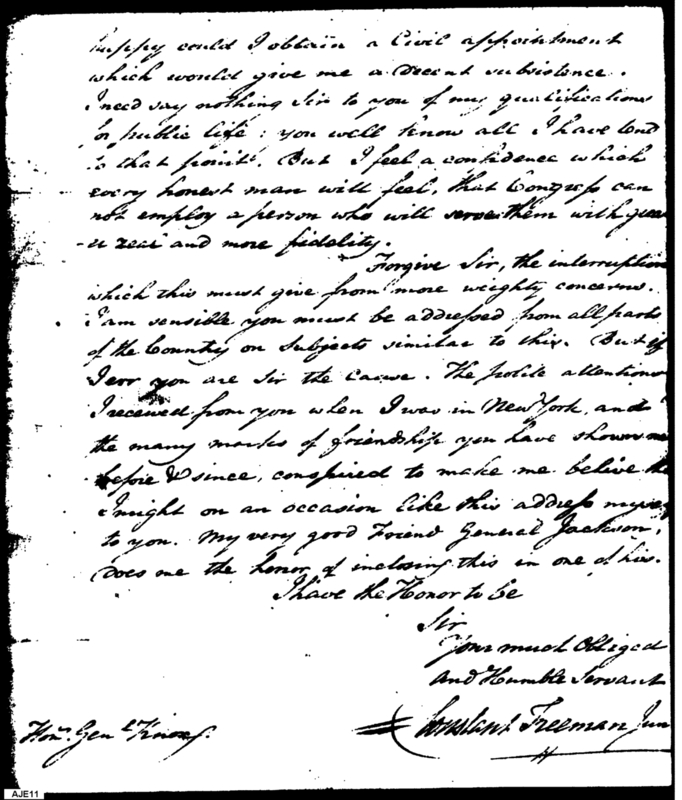 happy could I obtain a Civil appointment
which would give me a Decent subsistence.
I need say nothing Sir to you of my qualifications
for public life: you well know all I have tend
to that point. But I feel a confidence which
every honest man will feel, that Congress can
not employ a person who will serve them with grea
-er zeal and more fidelity.
Forgive Sir, the interruption
which this must give from more weighty concerns.
I am sensible you must be addressed from all parts
of the Country on Subjects similar to this. But if
I err you are Sir the cause. The polite attentions
I received from you when I was in New York, and
the many marks of friendship you have shown me
before & since, conspired to make me belive
I might on an occasion like this address myself
to you. My very good Friend General Jackson,
Does me the honor of inclosing this in one of his.
I have the Honor to be
Sir
Your much Obliged
and Humble Servant
Constant Freeman Jun
Honr. Genl. Knox.
AJE11